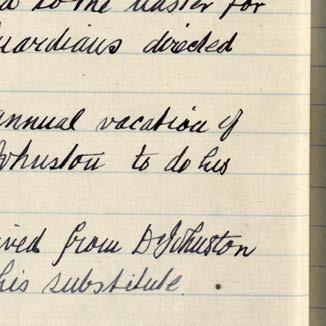 to the Master for
Guardians directed
annual vacation of
Johnston to do his
ived from Dr Johnston
his substitute.